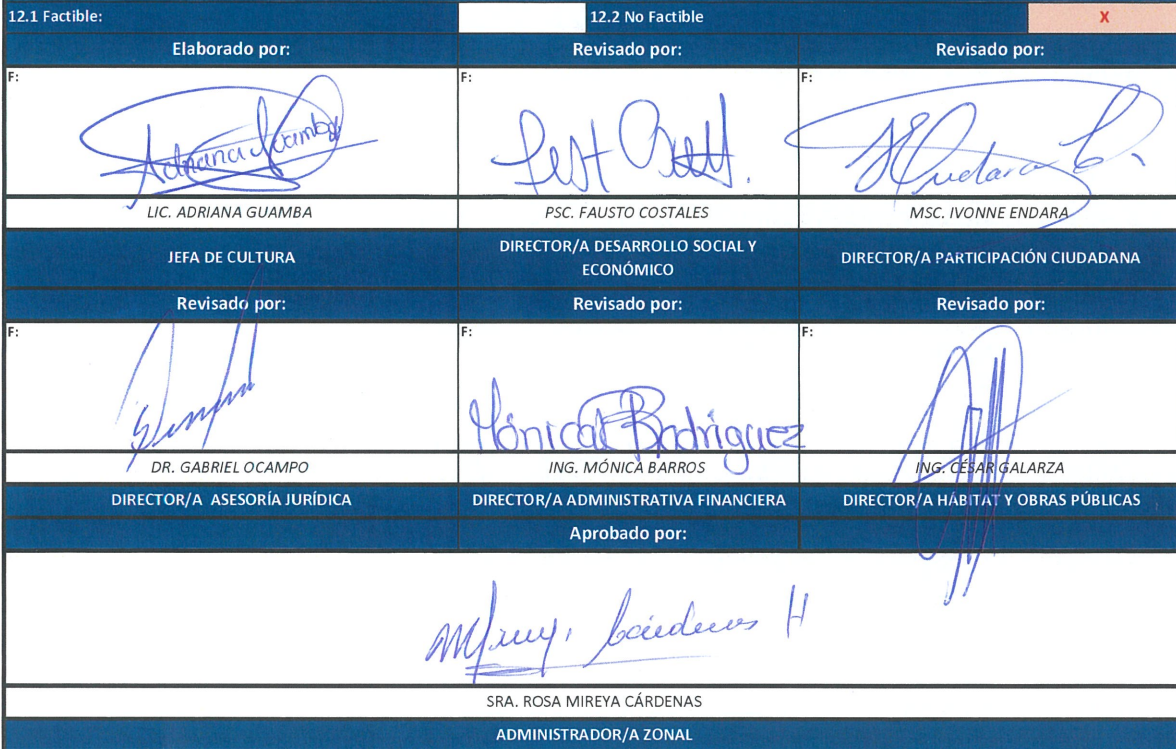 12.1 Factible: 12.2 No Factible X
Elaborado por: Revisado por: Revisado por:
F: F: F:
Adriana Guamba
LIC. ADRIANA GUAMBA PSC. FAUSTO COSTALES MSC. IVONNE ENDARA
JEFA DE CULTURA DIRECTOR/A DESARROLLO SOCIAL Y ECONÓMICO DIRECTOR/A PARTICIPACIÓN CIUDADANA
Revisado por: Revisado por: Revisado por:
F: F: F:
Mónica B Rodriguez
DR. GABRIEL OCAMPO ING. MÓNICA BARROS ING. CÉSAR GALARZA
DIRECTOR/A ASESORÍA JURÍDICA DIRECTOR/A ADMINISTRATIVA FINANCIERA DIRECTOR/A HÁBITAT Y OBRAS PÚBLICAS
Aprobado por:
SRA. ROSA MIREYA CÁRDENAS
ADMINISTRADOR/A ZONAL